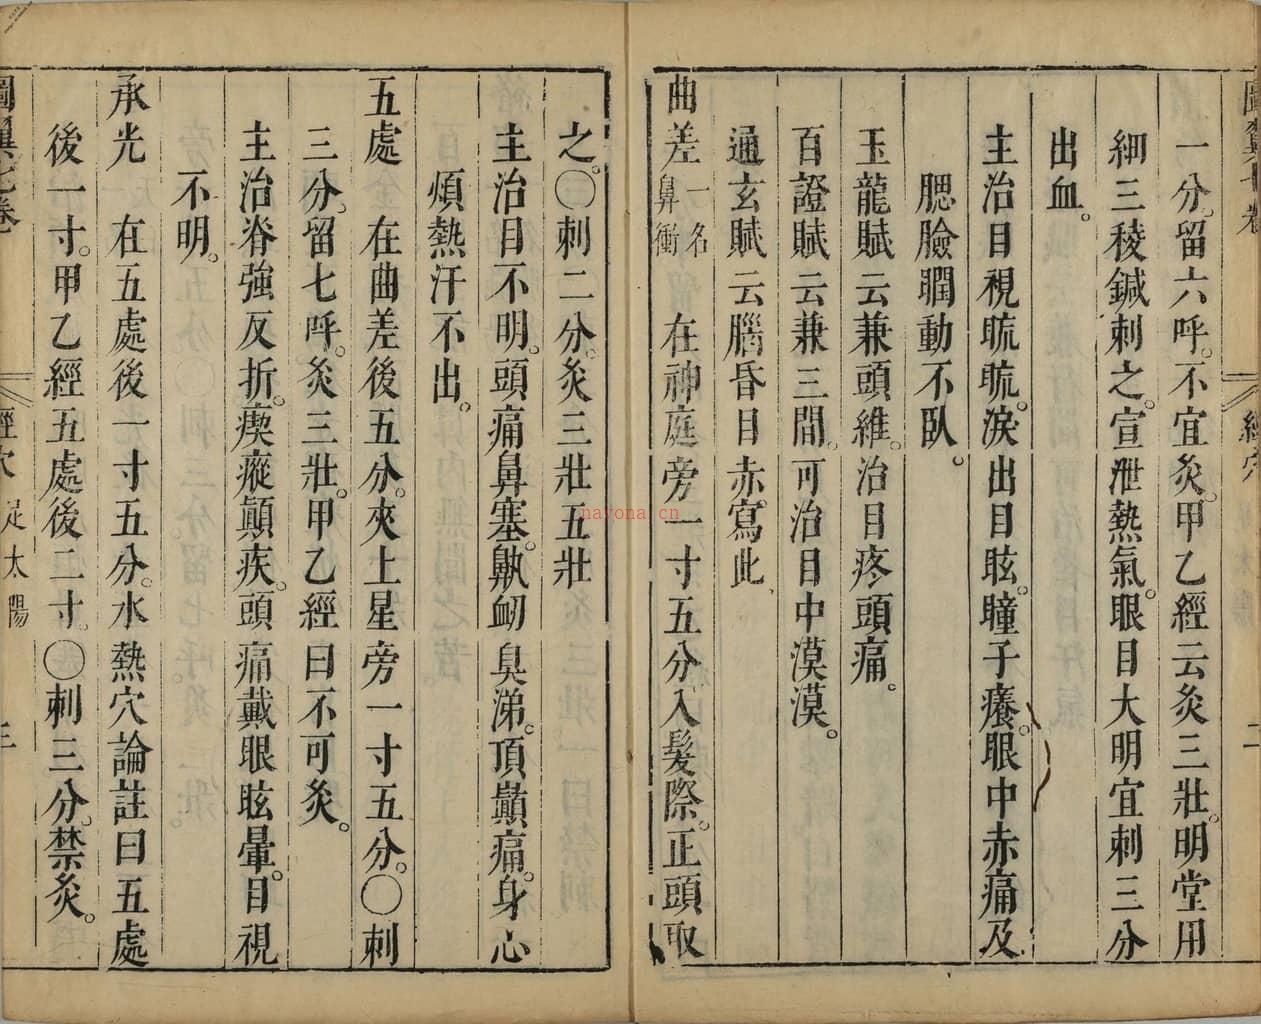 圖翼七卷
經穴
二
一分。留六呼。不宜灸。甲乙經云灸三壯。明堂用
細三稜鍼刺之。宣泄熱氣。眼目大明宜刺三分
出血。
主治目視䀮䀮。淚出目眩。瞳子癢。眼中赤痛及
腮臉瞤動不臥。
玉龍賦云兼頭維。治目疼頭痛。
百證賦云兼三間。可治目中漠漠。
通玄賦云腦昏目赤。寫此、
曲差一名鼻衝 在神庭旁一寸五分入髮際。正頭取
之。〇刺二分。灸三壯五壯
主治目不明。頭痛鼻塞。鼽衂臭涕。頂巔痛。身心
煩熱汗不出。
五處 在曲差後五分。夾上星旁一寸五分。〇刺
三分。留七呼。灸三壯。甲乙經曰不可灸。
主治脊強反折。瘈瘲顚疾。頭痛戴眼眩暈。目視
不明。
承光 在五處後一寸五分。水熱穴論註曰五處
後一寸。甲乙經五處後二寸。〇刺三分。禁灸。
圖翼七卷
經穴 足太陽
三
nayona.cn